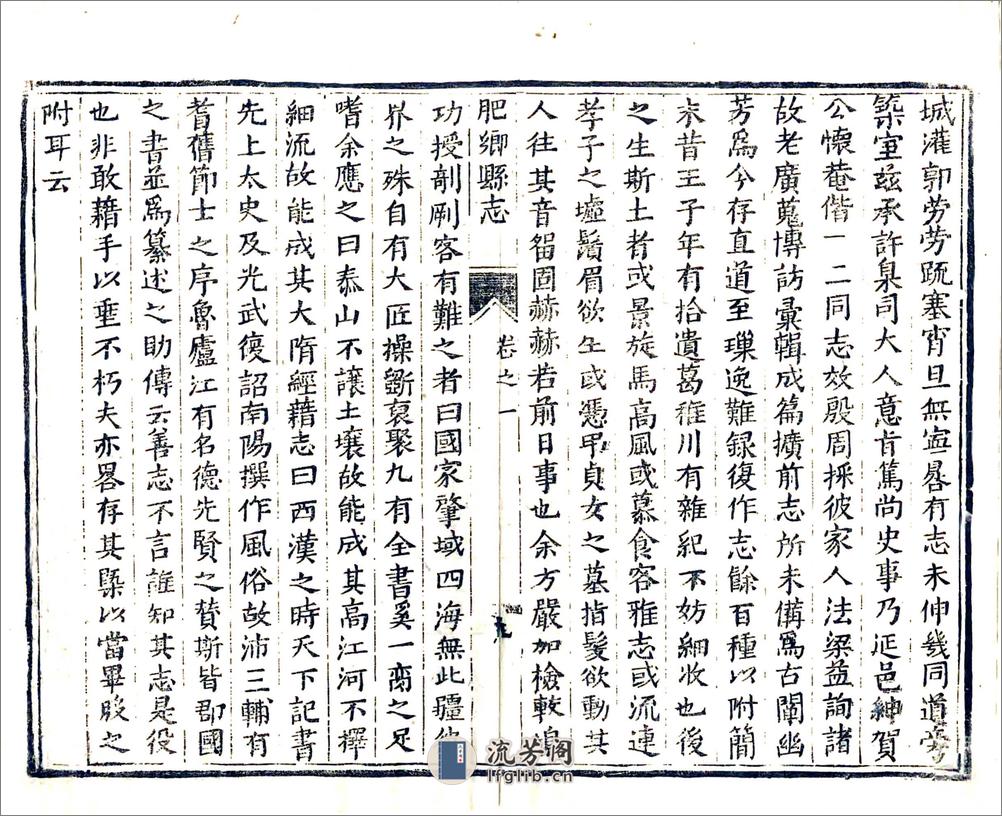 城灌郭劳劳疏塞宵旦無寧晷有志未伸幾同道旁
築室兹承許臬司大人意肯篤尚史事乃延邑紳賀
公懷菴偕一二同志效殷周採彼家人法梁益詢諸
故老廣蒐博訪彙輯成篇擴前志所未備爲古闡幽
芳爲今存直道至璅逸難録復作志餘百種以附簡
末昔王子年有拾遺葛稚川有雜紀不妨細收也後
之生斯土者或景旋馬高風或慕食客雅志或流連
孝子之墟鬚眉欲生或憑弔貞女之墓指髮欲動其
人往其音留固赫赫若前日事也余方嚴加檢較鳩
肥鄉縣志
卷之一
功授剞劂客有難之者曰國家肇域四海無此疆彼
界之殊自有大匠操斵裒聚九有全書奚一臠之足
嗜余應之曰泰山不讓土壤故能成其高江河不擇
細流故能成其大隋經籍志曰西漢之時天下記書
先上太史及光武復詔南陽撰作風俗故沛三輔有
耆舊節士之序魯廬江有名德先賢之贊斯皆郡國
之書並爲纂述之助傳云善志不言誰知其志是役
也非敢藉手以垂不朽夫亦畧存其槩以當畢股之
附耳云
流芳阁
lfglib.cn